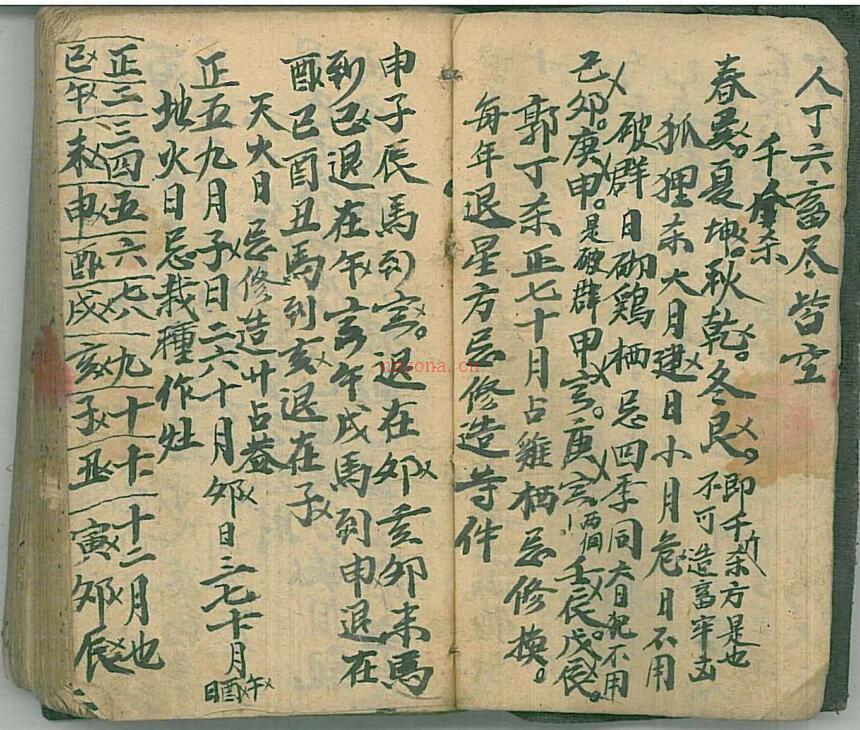 人丁六畜尽皆空
千斤杀
春巽。夏坤。秋乾。冬艮。即千斤杀方是也
不可造畜牢击
狐狸杀大月建日小月危日不用
破群日砌鷄栖忌四季同六日犯不用
己卯。庚申。是破群甲寅。庚寅。两個壬辰。戊辰。
郭丁杀正七十月占雞栖忌修换。
每年退星方忌修造等件
申子辰馬到寅。退在卯亥卯未馬
到巳退在午寅午戌馬到申退在
酉巳酉丑馬到亥退在子
天火日忌修造卄占盖
正五九月子日二六十月卯日三七十一月午
酉日
地火日忌栽種作灶
正二三四五六七八九十十一十二月也
巳午未申酉戌亥子丑寅卯辰
nayona.cn